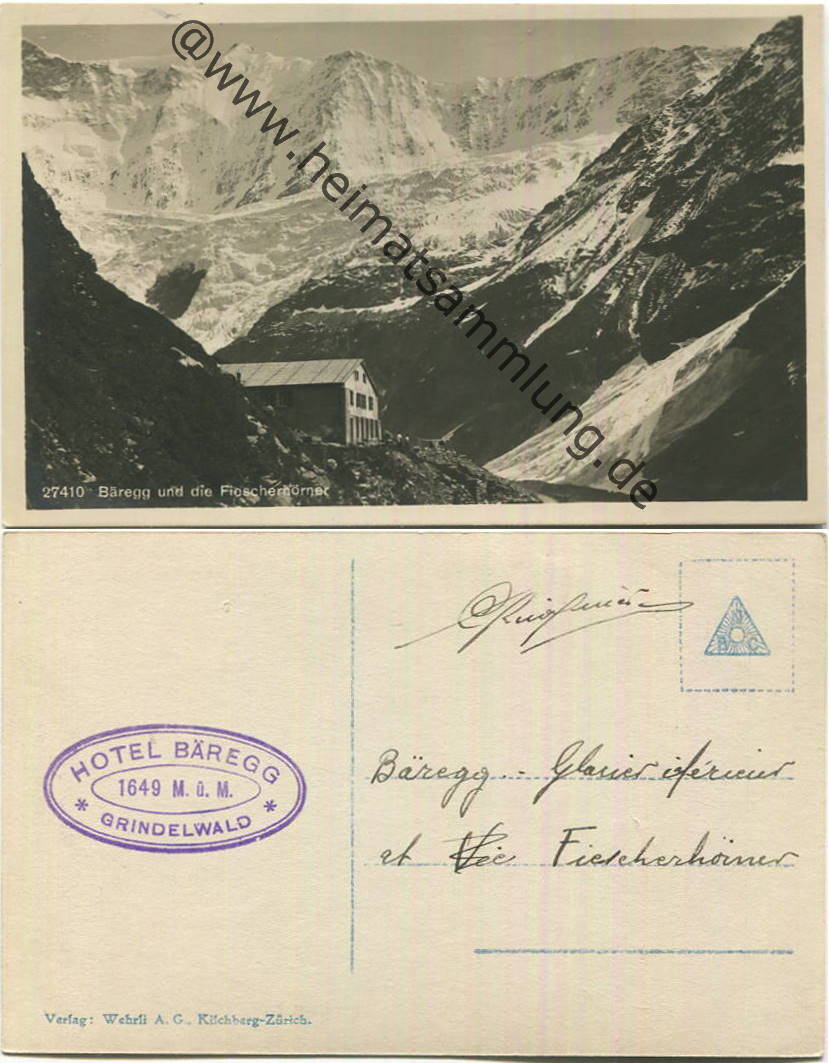 @www.heimatsammlung.de
27410 Bäregg und die Fiescherhörner
HOTEL BÄREGG
1649 M. ü. M.
* GRINDELWALD *
Bäregg. - Glacier iférieur
et Fiescherhörner
Verlag: Wehrli A. G., Kilchberg-Zürich.